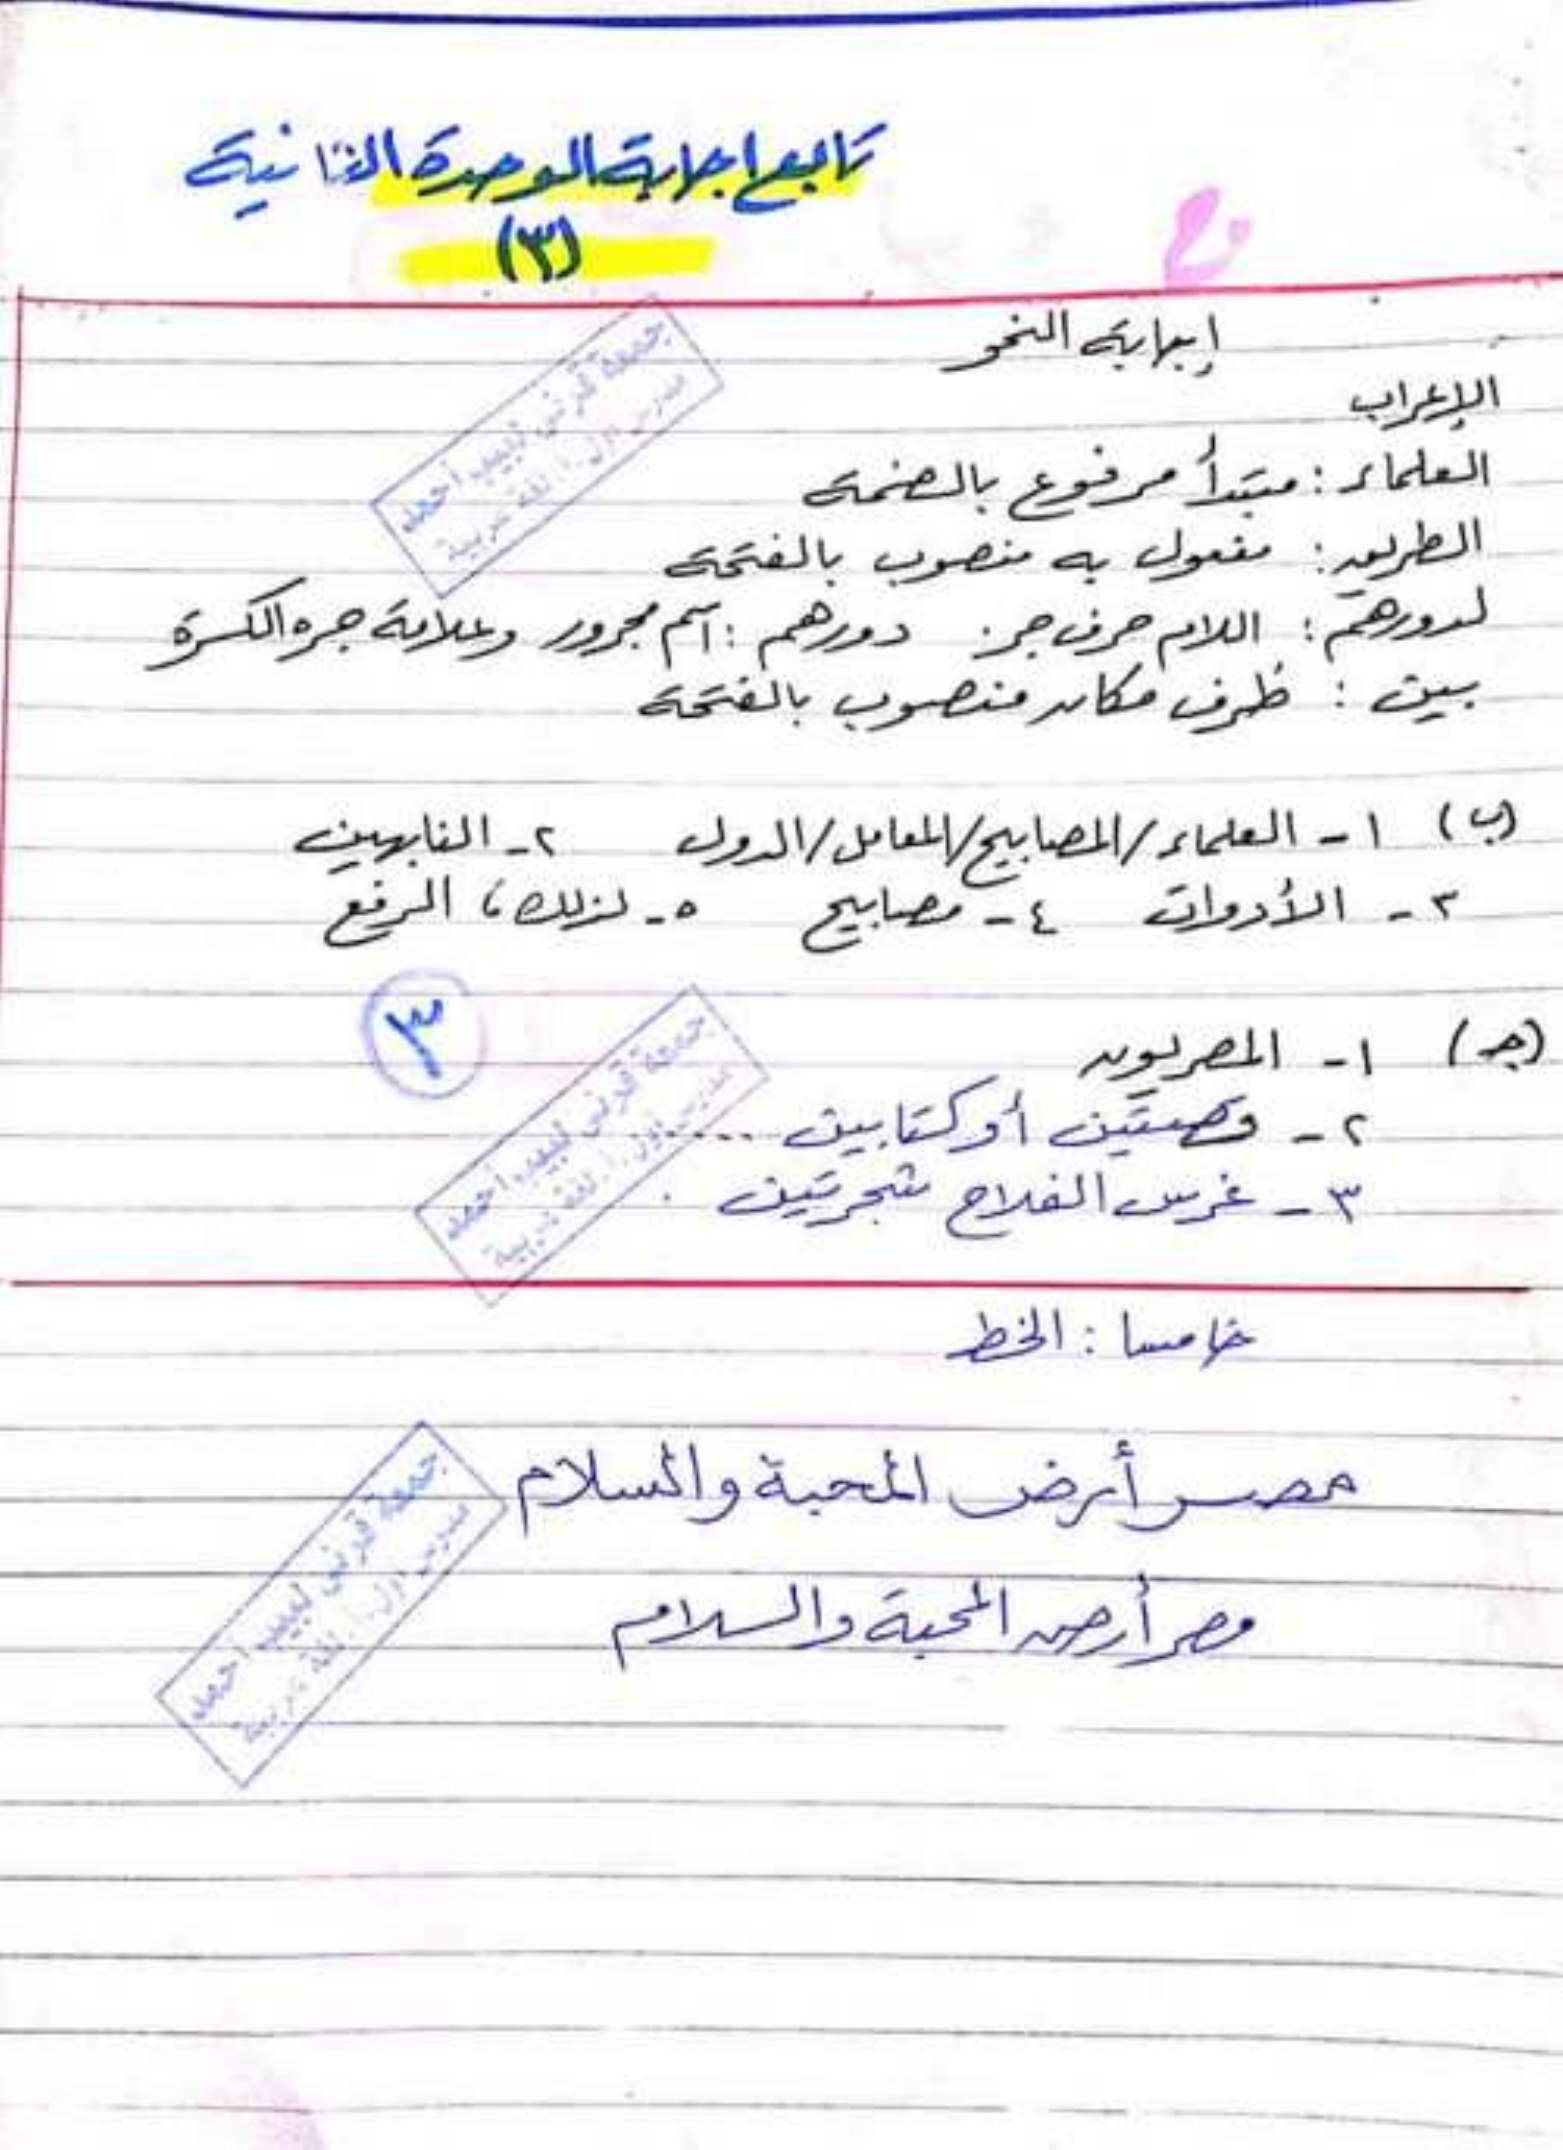 تابع إجابة الوحدة الثانية
(٣)
إجابة النحو
الإعراب
العلماء : مبتدأ مرفوع بالضمة
الطريق : مفعول به منصوب بالفتحة
لدورهم : اللام حرف جر . دورهم : اسم مجرور وعلامة جره الكسرة
بين : ظرف مكان منصوب بالفتحة
(ب) ١ - العلماء / المصابيح / المعامل / الدول ٢ - النابهين
٣ - الأدوات ٤ - مصابيح ٥ - لذلك ، الرفع
(جـ) ١ - المصريون
٢ - قصتين أو كتابين ....
٣ - غرس الفلاح شجرتين .
٣
خامسا : الخط
مصر أرض المحبة والسلام
مصر أرض المحبة والسلام
جمعة قرني لبيب أحمد
مدرس أول أ. لغة عربية
جمعة قرني لبيب أحمد
مدرس أول أ. لغة عربية
جمعة قرني لبيب أحمد
مدرس أول أ. لغة عربية